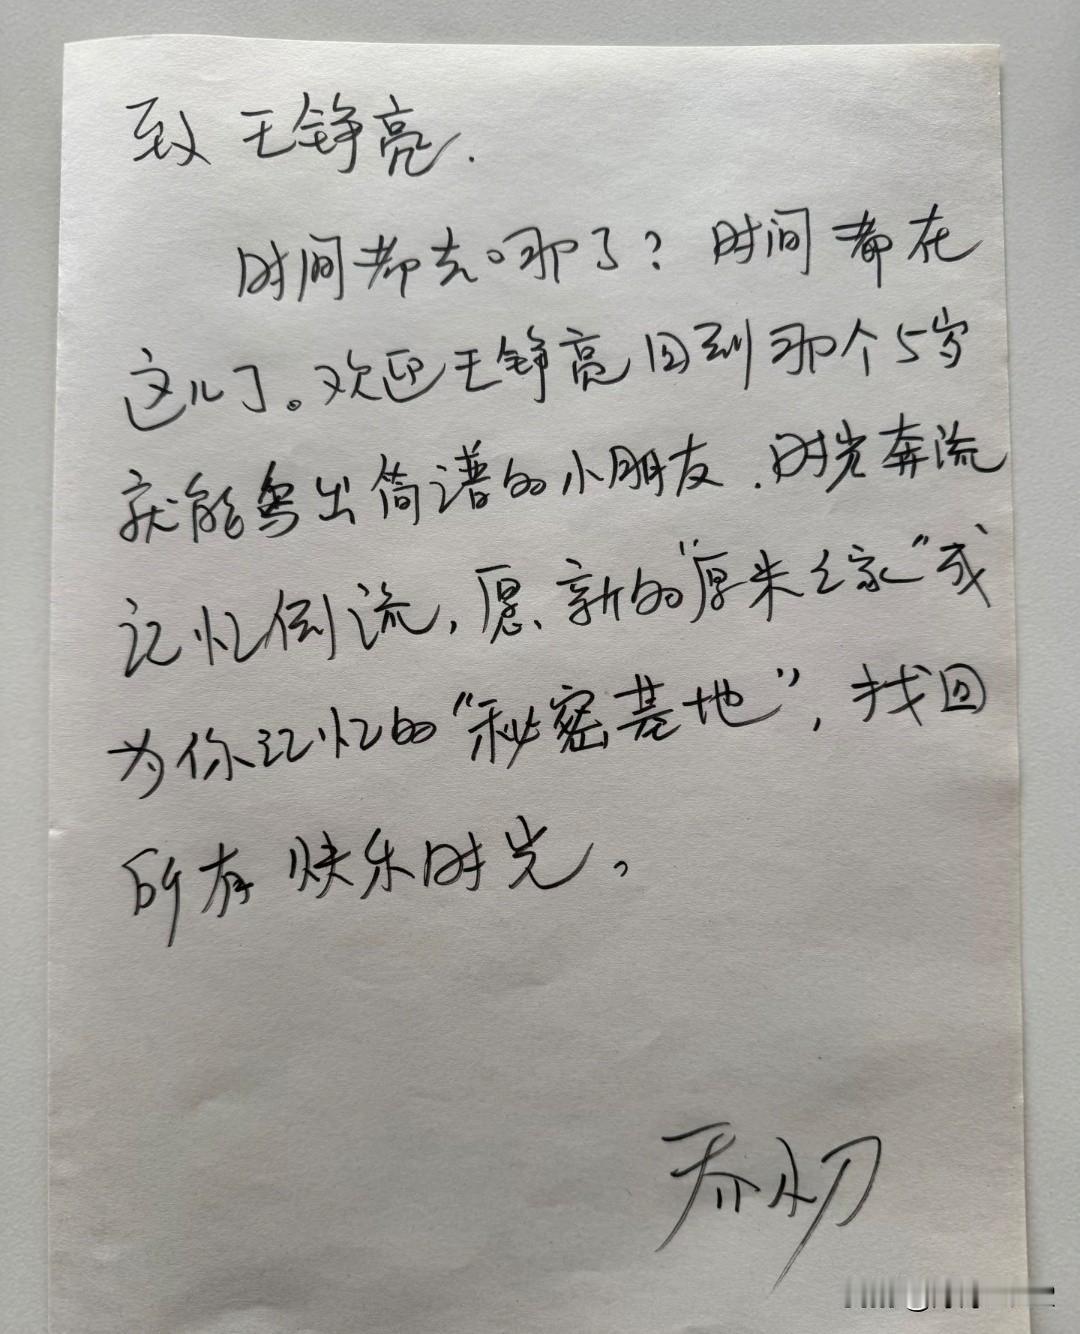 致 王铮亮.
时间都去哪了？时间都在
这儿了。欢迎王铮亮回到那个5岁
就能写出简谱的小朋友.时光奔流
记忆倒流,愿新的“原来之家”成
为你记忆的“秘密基地”,找回
所有快乐时光。
乔初